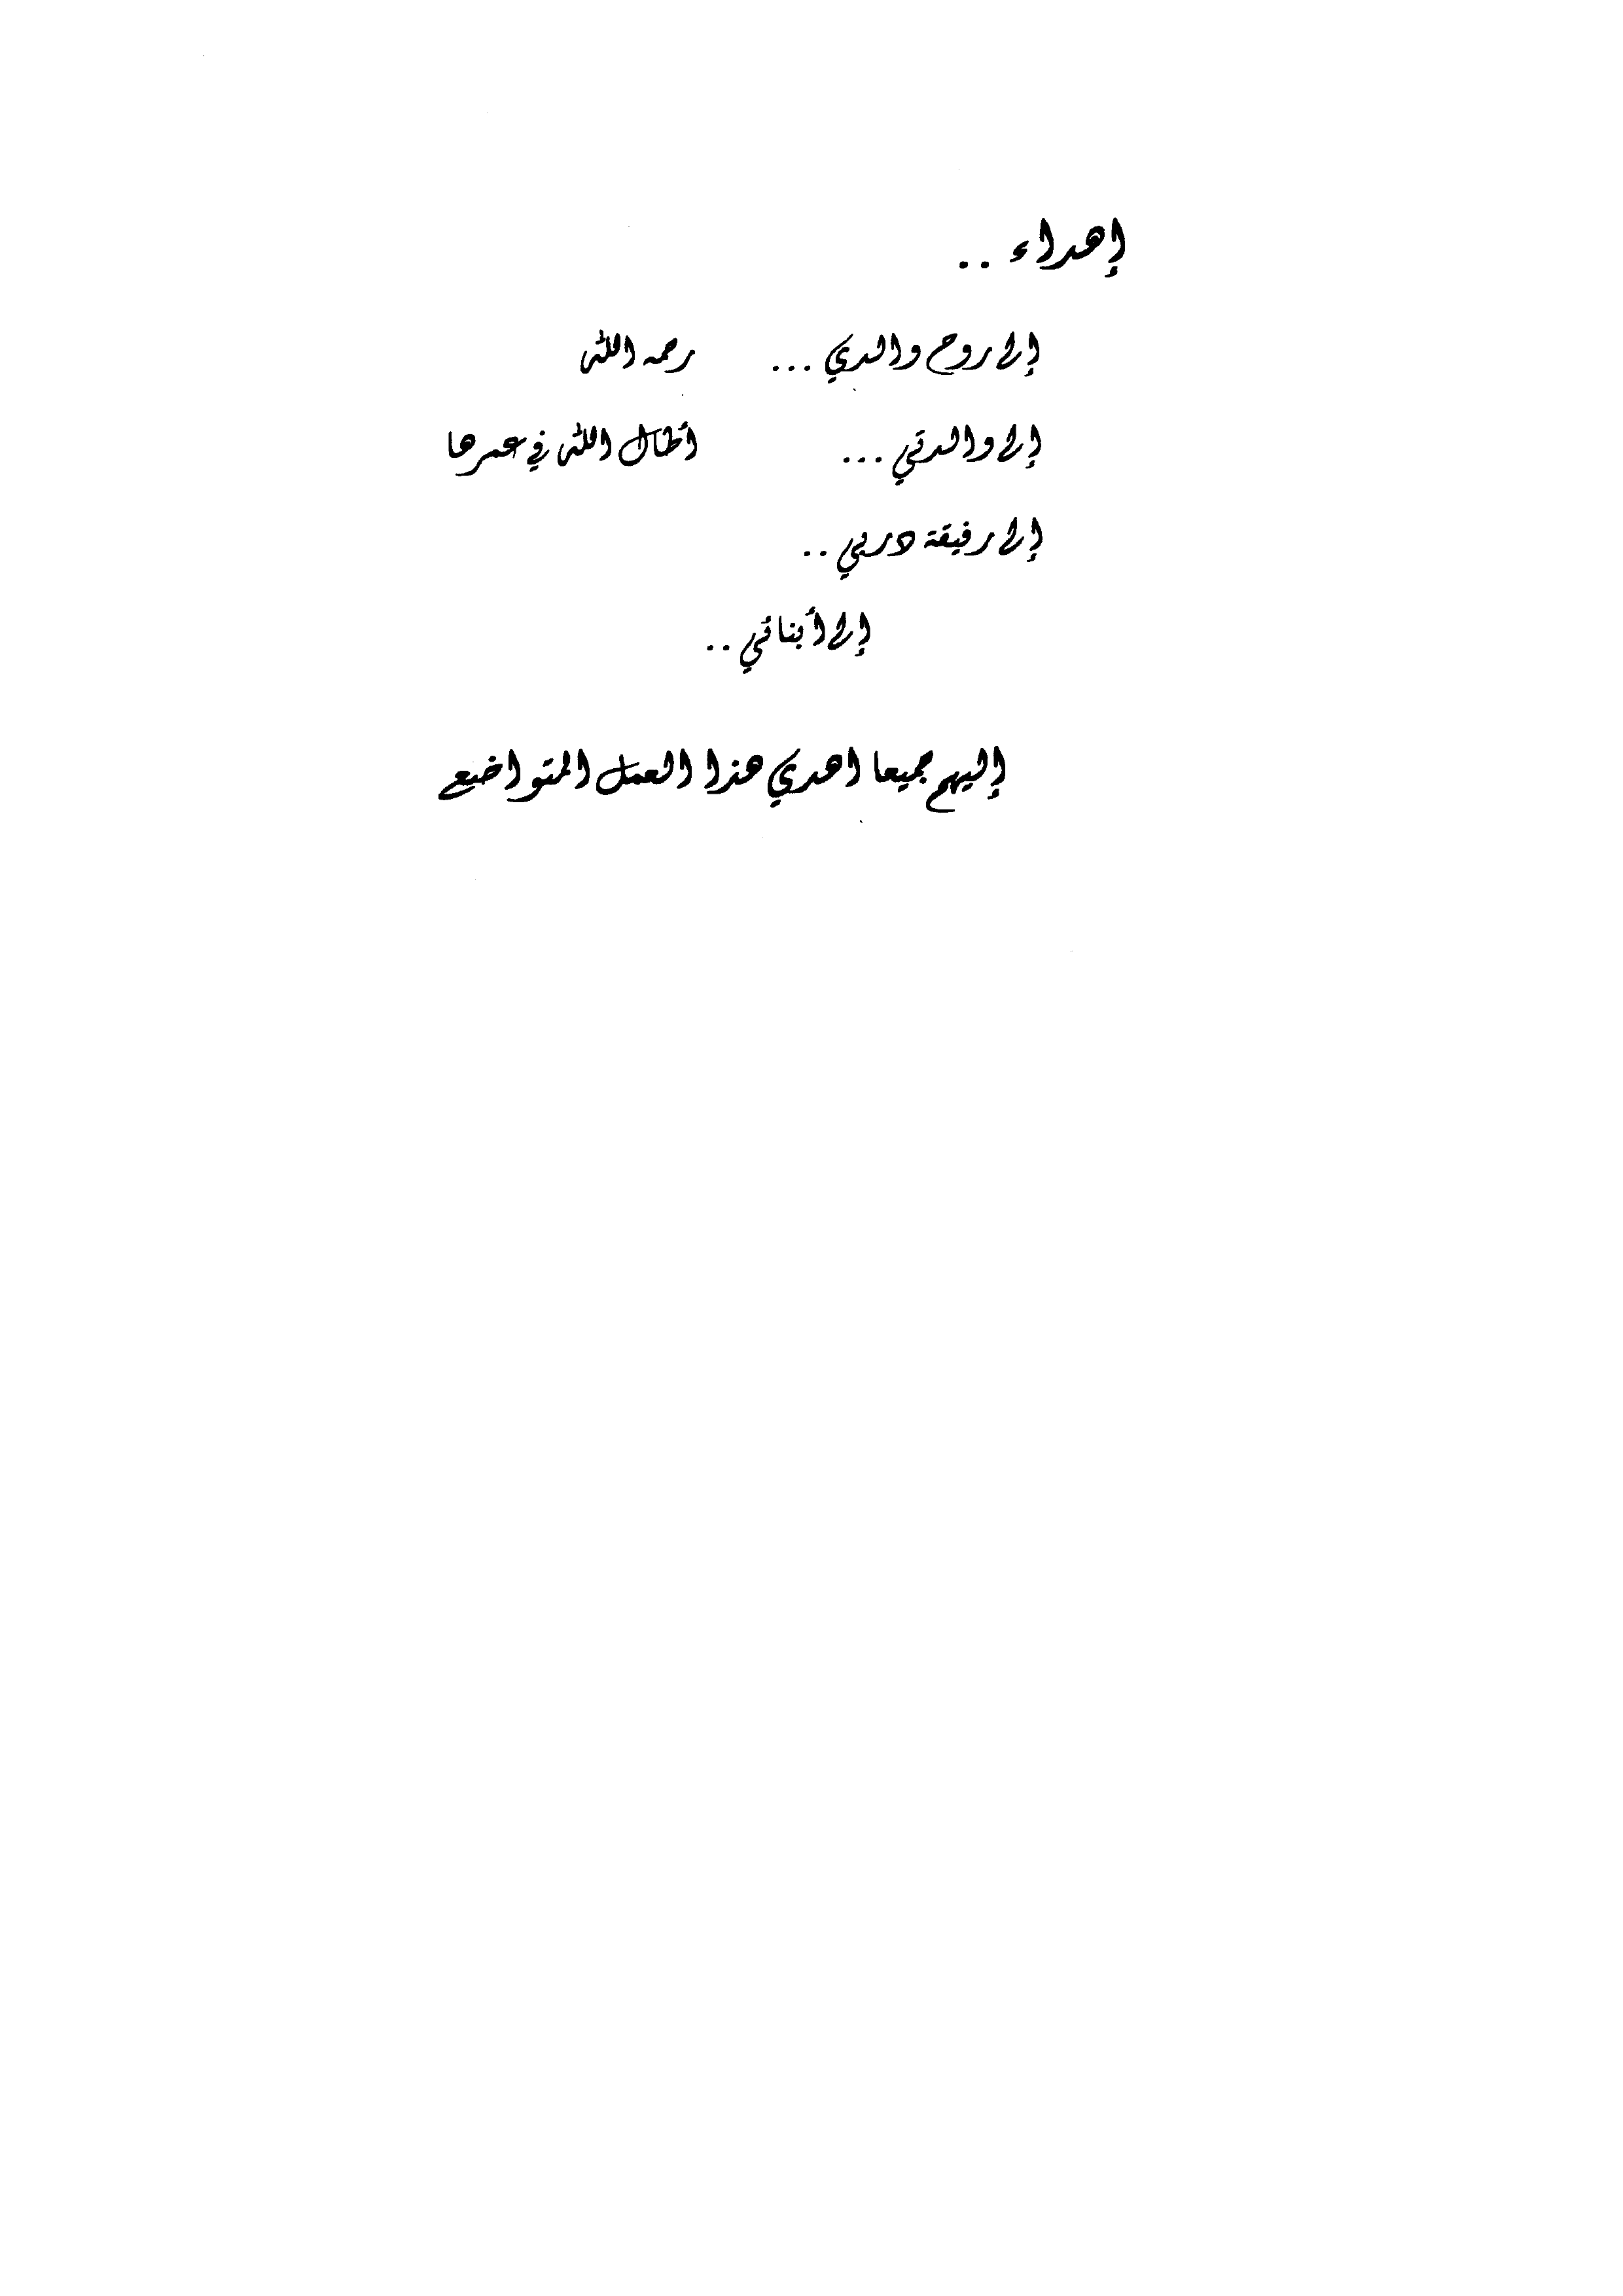 إهداء ..
إلى روح والدي ... رحمه الله
إلى والدتي ... أطال الله في عمرها
إلى رفيقة دربي ..
إلى أبنائي ..
إليهم جميعا اهدي هذا العمل المتواضع